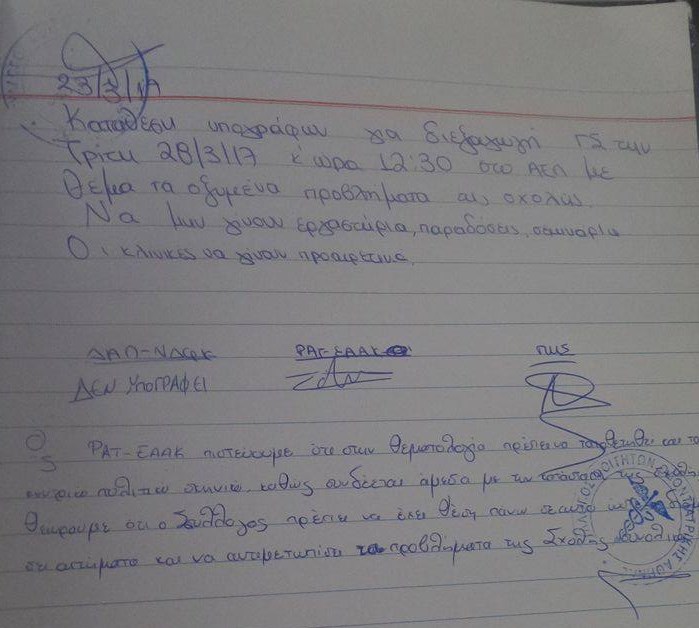 23/3/17
Κατάθεση υπογραφών για διεξαγωγή ΓΣ την
Τρίτη 28/3/17 κ' ώρα 12:30 στο ΑΕΠ με
θέμα τα οξυμένα προβλήματα της σχολής.
Να μην γίνουν εργαστήρια, παραδόσεις, σεμινάρια
Οι κλινικες να γίνουν προαιρετικα.
ΔΑΠ-ΝΔΦΚ ΡΑΓ-ΕΑΑΚ ΠΚΣ
ΔΕΝ ΥΠΟΓΡΑΦΕΙ
Ως ΡΑΓ-ΕΑΑΚ πιστεύουμε ότι στην θεματολογία πρέπει να τοποθετηθεί και το
πολιτικο σκηνικο, καθώς συνδέεται άμεσα με την κατάσταση της σχολής
Θεωρουμε οτι ο Σύλλογος πρέπει να έχει θέση πανω σε αυτά
τα αιτήματα και να αντιμετωπίσει τα προβλήματα της Σχολής συνολικα